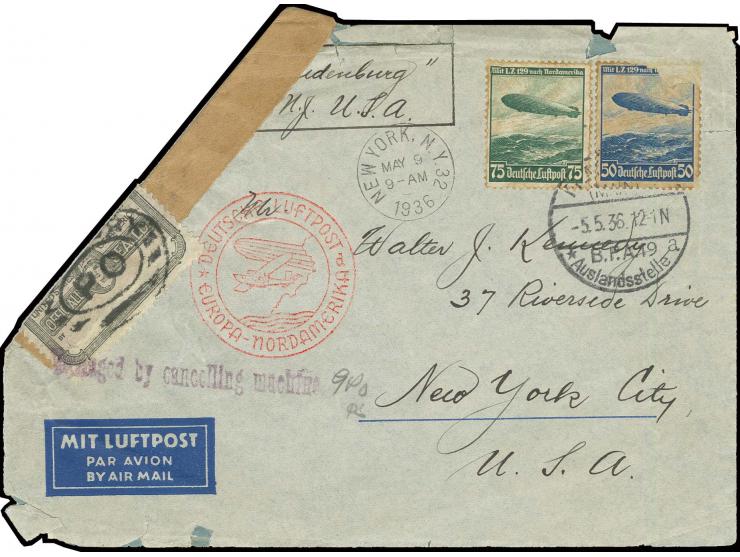 denburg"
N.J. U.S.A.
Mit LZ 129 nach Nordamerika
75 Deutsche Luftpost 75
Mit LZ 129 nach
50 Deutsche Luftpost 50
NEW YORK, N.Y. 32
MAY 9
9-AM
1936
-5.5.36.12-1N
B.P.A.19
a
Auslandsstelle
DEUTSCHE LUFTPOST
EUROPA-NORDAMERIKA
Walter J. Kennedy
37 Riverside Drive
New York City
U.S.A.
P.O
by cancelling machine
MIT LUFTPOST
PAR AVION
BY AIR MAIL